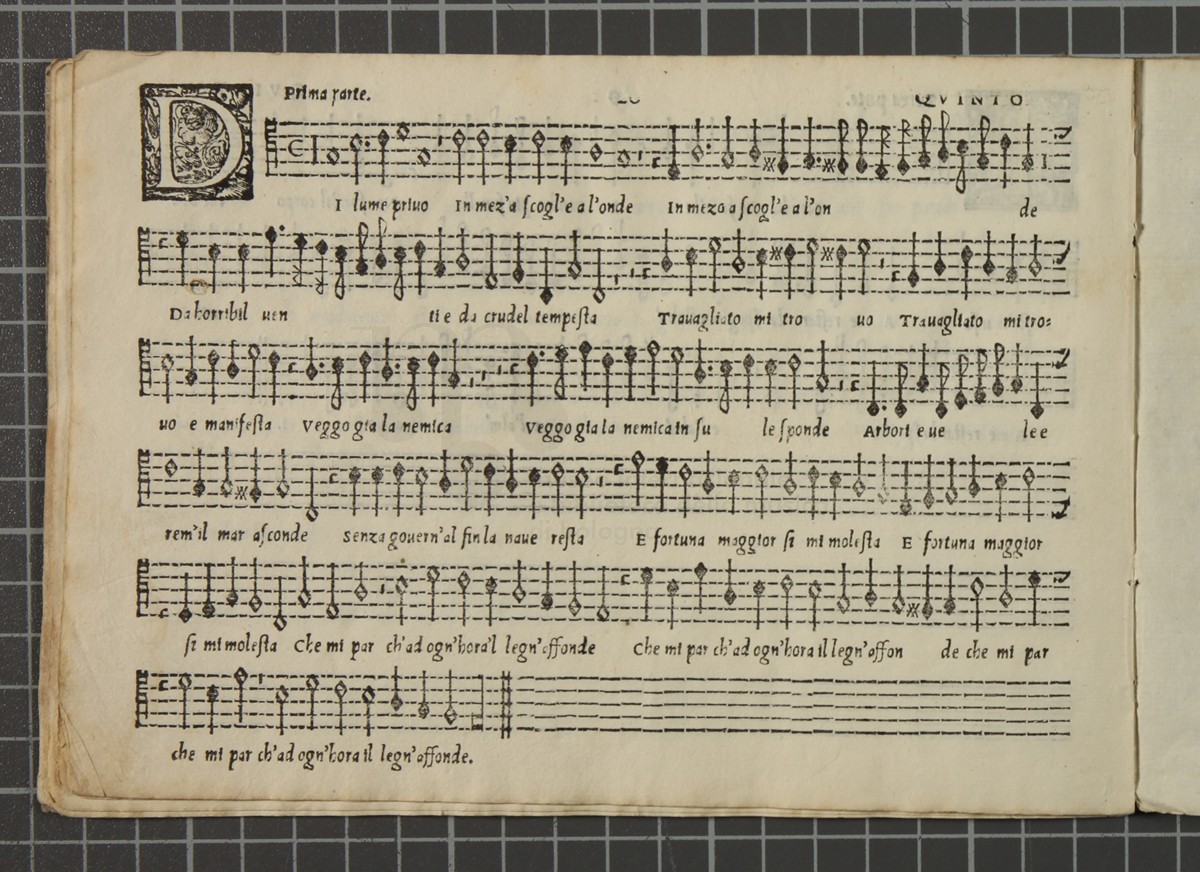 Prima parte. 20 QVINTO
DI lume priuo In mez'a scogl'e a l'onde In mezo a scogl'e a l'on de
Da horribil uen ti e da crudel tempesta Trauagliato mi tro uo Trauagliato mi tro=
uo e manifesta Veggo gia la nemica Veggo gia la nemica in su le sponde Arbori e ue le e
rem'il mar asconde Senza gouern'al fin la naue resta E fortuna maggior si mi molesta E fortuna maggior
si mi molesta Che mi par ch'ad ogn'hora'l legn'affonde Che mi par ch'ad ogn'hora il legn'affon de che mi par
che mi par ch'ad ogn'hora il legn'affonde.